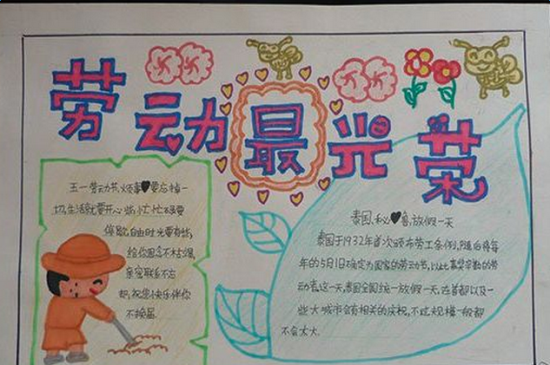 劳动最光荣
五一劳动节,烦事♥要忘掉一
切,生活就要开心些,忙忙碌碌要
停歇,自由时光要有些,
给你思念不枯竭,
亲密联系不忘
却,祝您快乐伴你
不换届
泰国、秘♥鲁放假一天
泰国于1932年首次颁布劳工条例,随后将每
年的5月1日确定为国家的劳动节,以此嘉奖辛勤的劳
动者这一天,泰国全国统一放假一天,在首都以及一
些大城市会有相关的庆祝,不过规模一般都
不会太大.